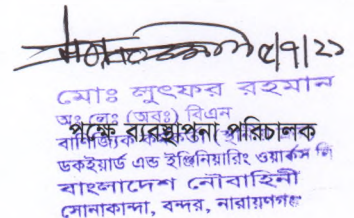 ৫/৭/২১
মোঃ লুৎফর রহমান
অঃ লেঃ (অবঃ) বিএন
পক্ষে ব্যবস্থাপনা পরিচালক
বাণিজ্যিক
ডকইয়ার্ড এন্ড ইঞ্জিনিয়ারিং ওয়ার্কস লি
বাংলাদেশ নৌবাহিনী
সোনাকান্দা, বন্দর, নারায়ণগঞ্জ